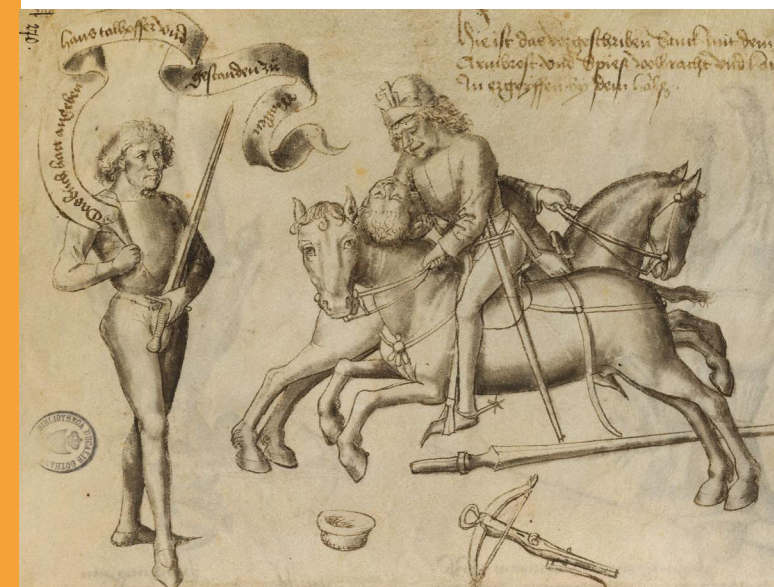 Das buch hatt angeben
hans talhoffer Und
gestanden zu
Mallen
Hie ist das vorgeschriben Stuck mit dem
Armbrost Vnd Spiesz volbracht Vnd
In ergryffen by dem halsz.
BIBLIOTHECA DUCALIS GOTHANA
270.